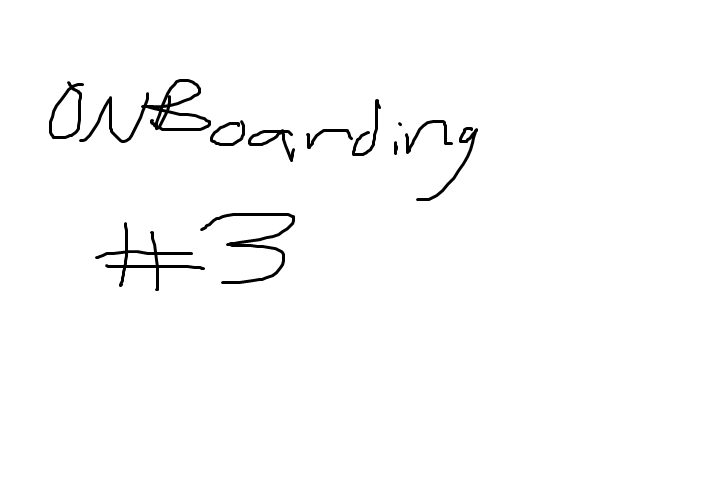 ONBoarding
#3